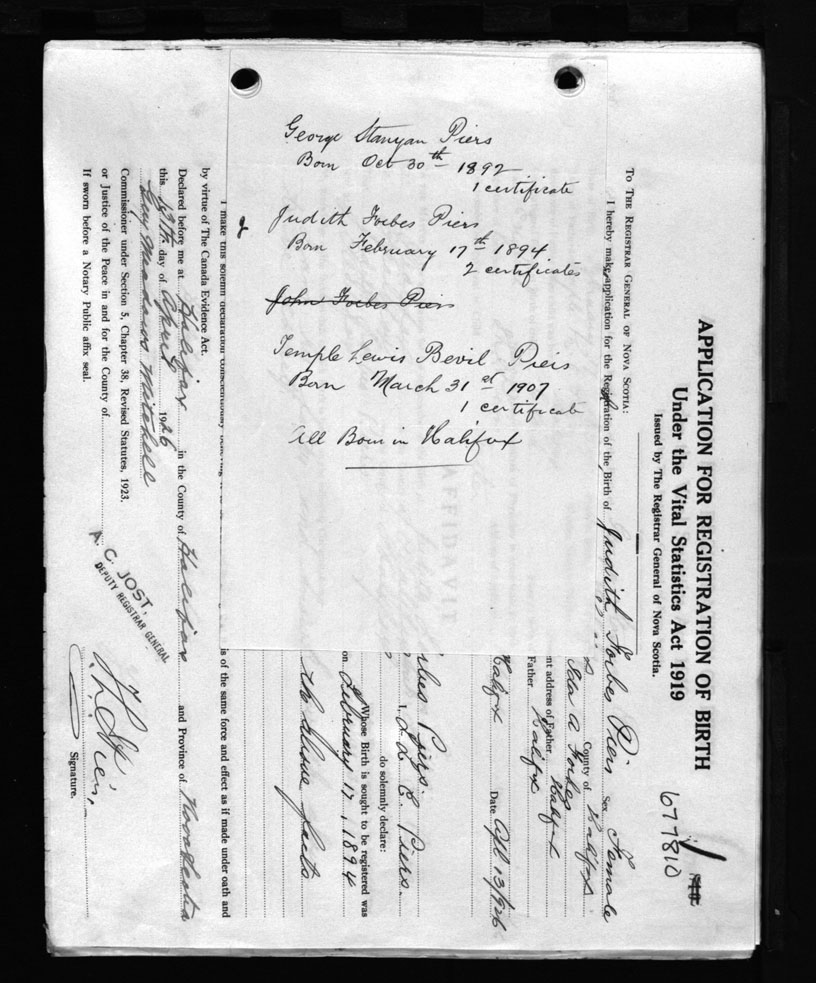 George Stanyan Piers
Born Oct 30th 1892
1 certificate
Judith Forbes Piers
Born February 17th 1894
2 certificates
John Forbes Piers
Temple Lewis Bevil Piers
Born March 31st 1907
1 certificate
All Born in Halifax
APPLICATION FOR REGISTRATION OF BIRTH
Under the Vital Statistics Act 1919
Issued by The Registrar General of Nova Scotia.
677810
TO THE REGISTRAR GENERAL OF NOVA SCOTIA:
I hereby make application for the Registration of the Birth of Judith Forbes Piers Sex Female
County of Halifax
Ida A Forbes
nt address of Father Halifax
Father Halifax
Halifax Date Apl 13/926
AFFIDAVIT
I, E. Piers.
do solemnly declare:
rbes Piers. Whose Birth is sought to be registered was
on February 17, 1894
the above facts
I make this solemn declaration conscientiously is of the same force and effect as if made under oath and
by virtue of The Canada Evidence Act.
Declared before me at Halifax in the County of Halifax and Province of Nova Scotia
this 19th day of April 1926
Guy Meadows Mitchell
Commissioner under Section 5, Chapter 38, Revised Statutes, 1923.
or Justice of the Peace in and for the County of
If sworn before a Notary Public affix seal.
A. C. JOST,
DEPUTY REGISTRAR GENERAL
Piers
Signature.